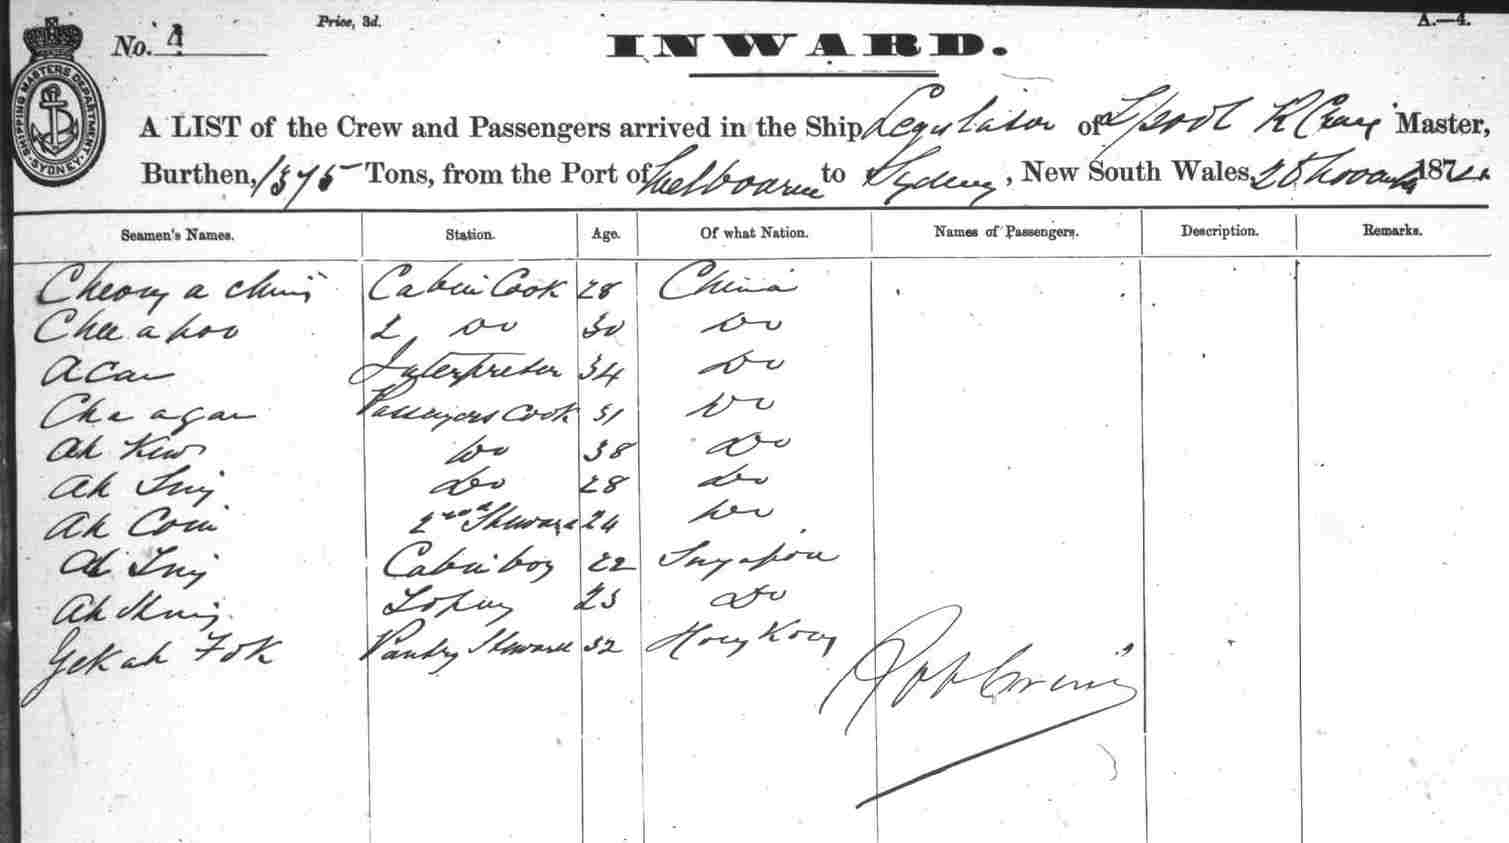 No. 4 Price, 3d. A.—4.
INWARD.
SHIPPING MASTERS DEPARTMENT SYDNEY
A LIST of the Crew and Passengers arrived in the Ship Legislator of Lpool R Craig Master,
Burthen, 1375 Tons, from the Port of Melbourne to Sydney, New South Wales, 187
Seamen's Names. Station. Age. Of what Nation. Names of Passengers. Description. Remarks.
Cabin Cook 28 China
Chee a hoo 2 Do 30 Do
Acan Interpreter 34 Do
Che a gan Passengers Cook 31 Do
Ah Kew Do 38 Do
Ah Do 28 Do
Ah Do 2nd Steward 24 Do
Cabin boy 22 Singapore
Ah 23 Do
Yek ah Fok Pantry Steward 32 Hong Kong